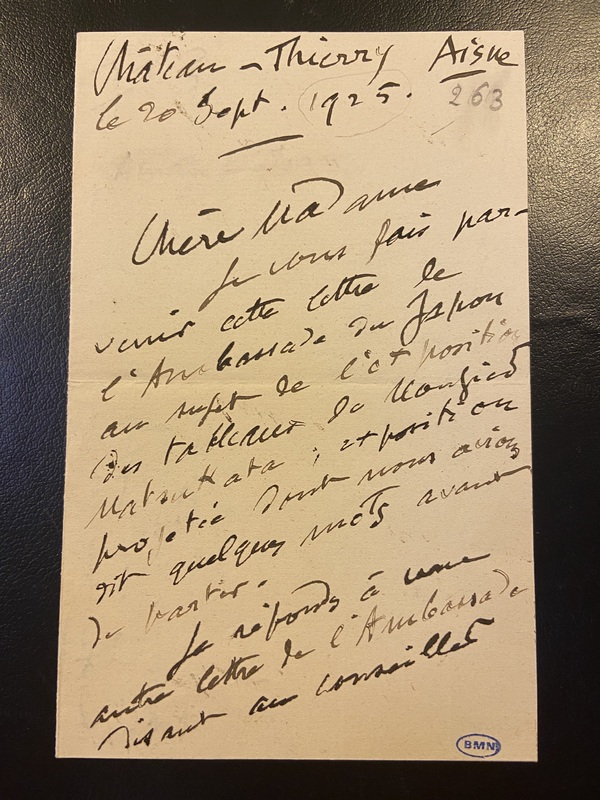 Château-Thierry Aisne
le 20 Sept. 1925.
263
Chère Madame
Je vous fais par-
venir cette lettre de
l'Ambassade du Japon
au sujet de l'exposition
des tableaux de Monsieur
Matsukata ; exposition
projetée dont nous avions
dit quelques mots avant
de partir.
Je réponds à une
autre lettre de l'Ambassade
disant au conseiller
BMN